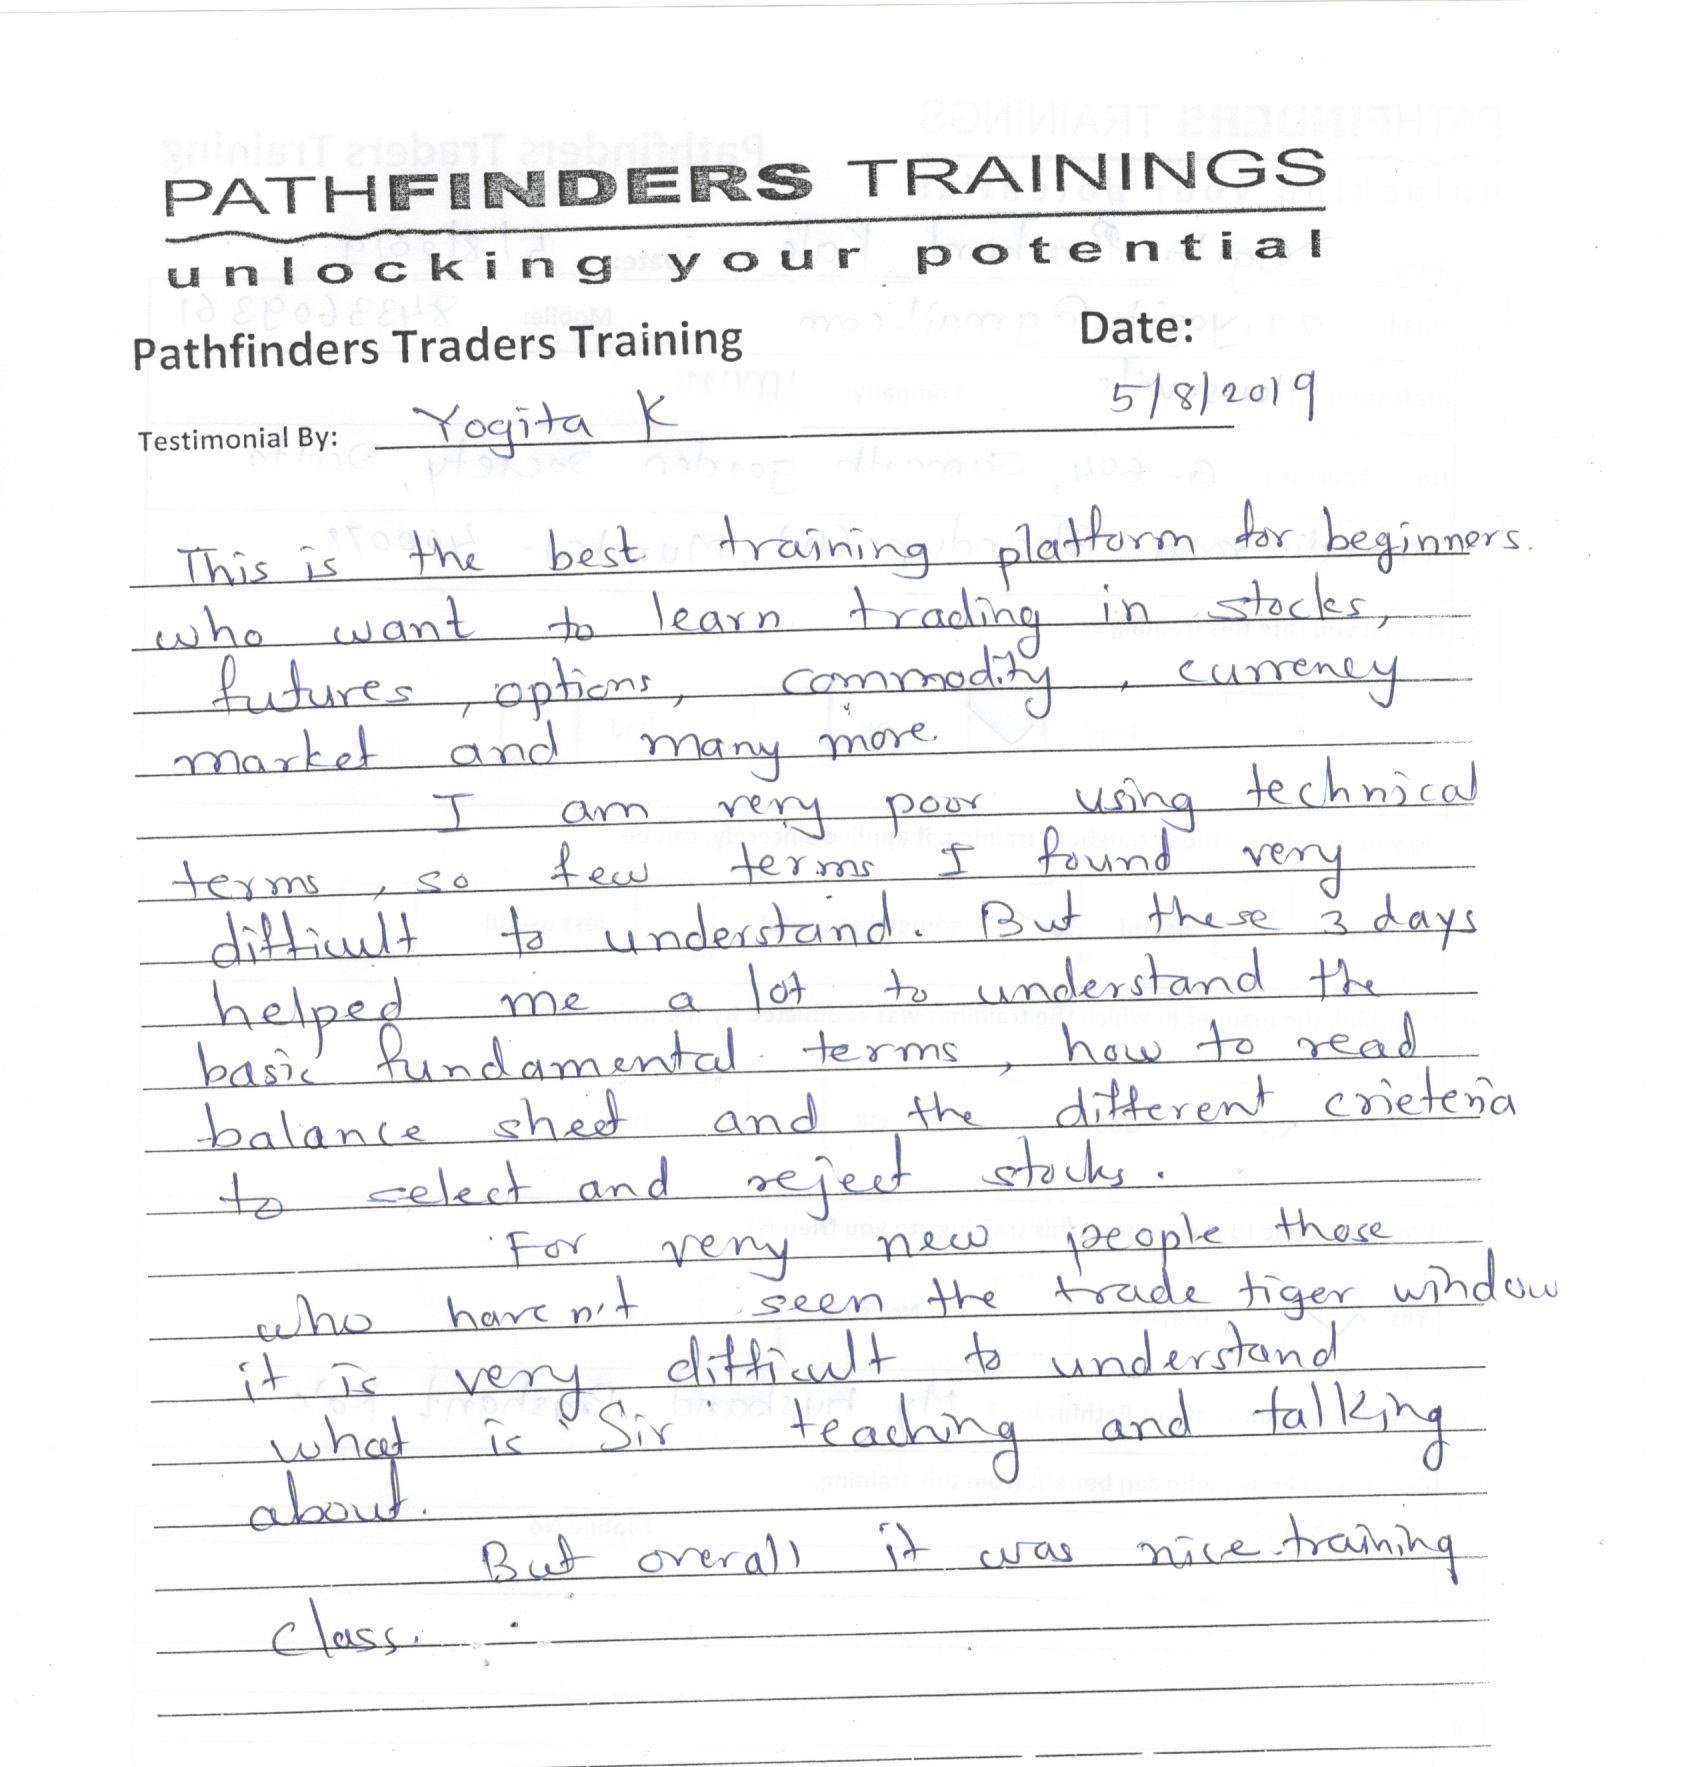 PATHFINDERS TRAININGS
unlocking your potential
Pathfinders Traders Training
Date:
5/8/2019
Testimonial By: Yogita K
This is the best training platform for beginners.
who want to learn trading in stocks,
futures, options, commodity, currency
market and many more.
I am very poor using technical
terms, so few terms I found very
difficult to understand. But these 3 days
helped me a lot to understand the
basic fundamental terms, how to read
balance sheet and the different crieteria
to select and reject stocks.
For very new people those
who have n't seen the trade tiger window
it is very difficult to understand
what is Sir teaching and talking
about.
But overall it was nice training
class.